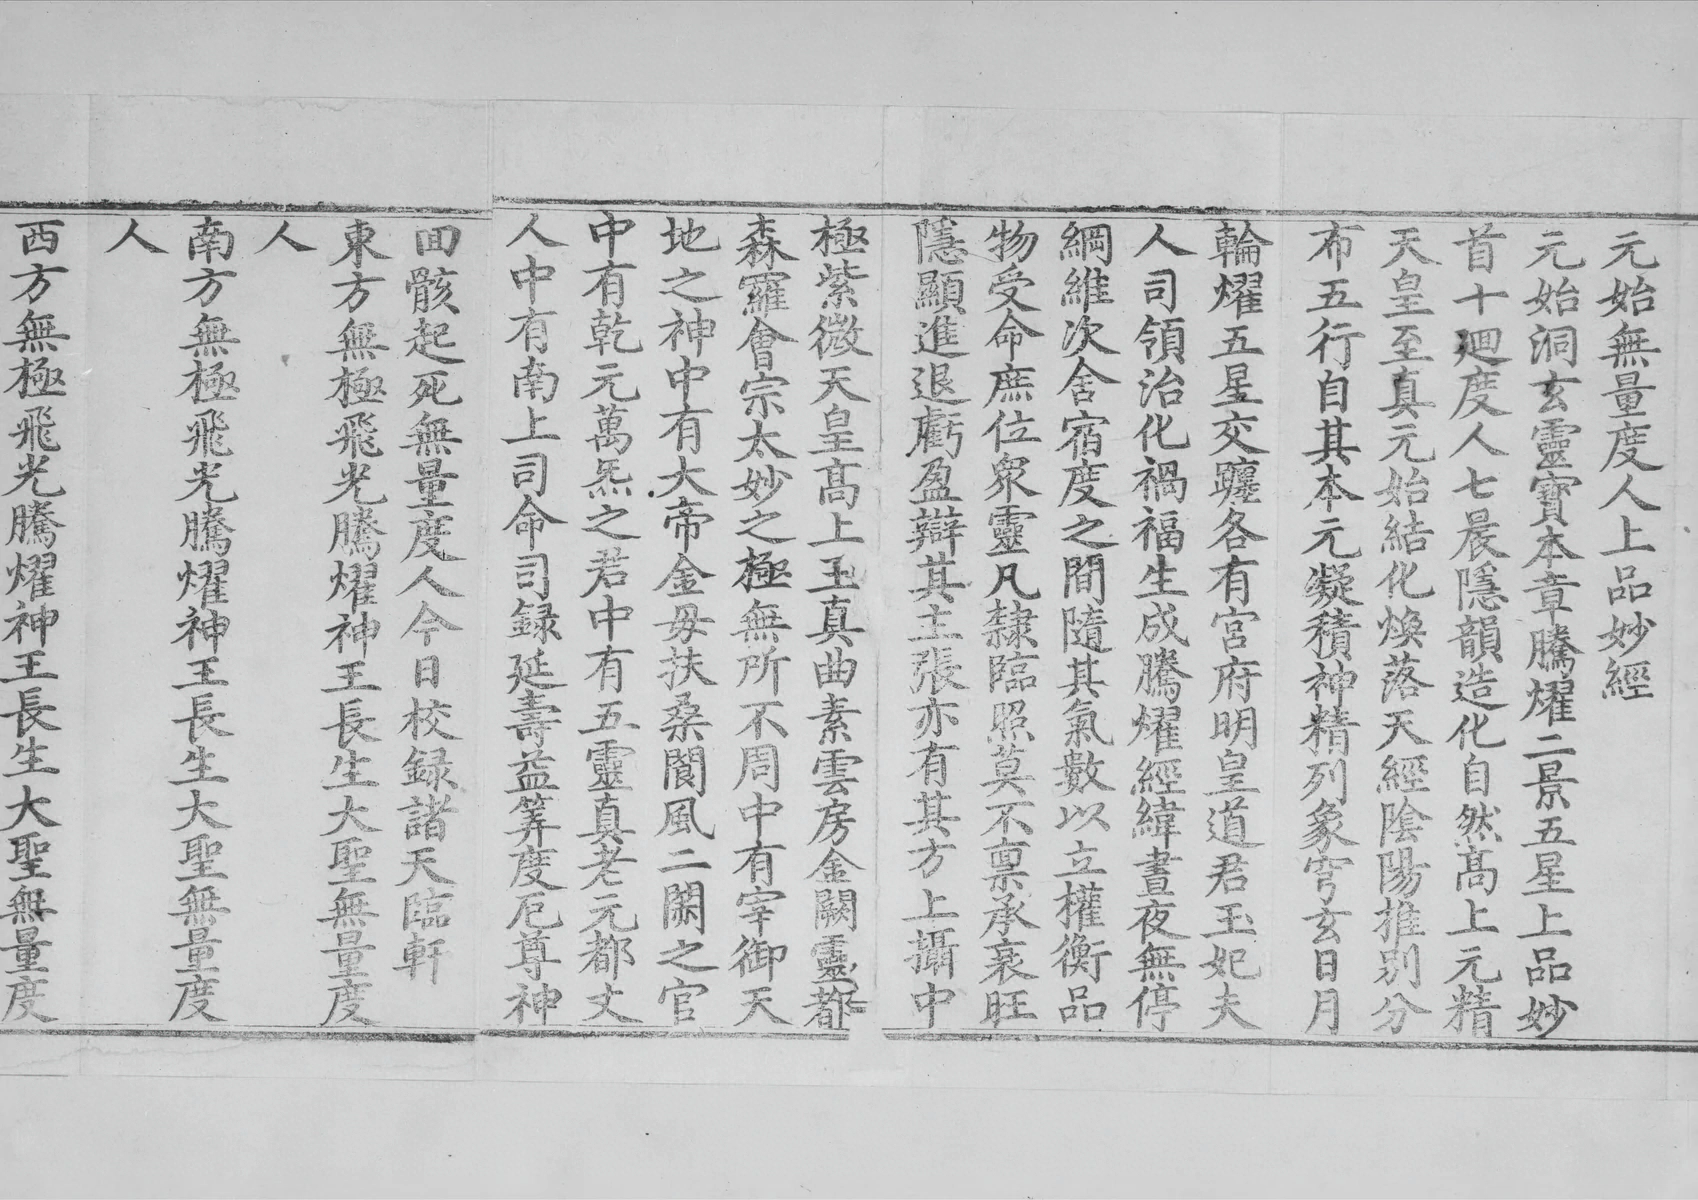 元始無量度人上品妙經
元始洞玄靈寶本章騰燿二景五星上品妙
首十廻度人七晨隱韻造化自然高上元精
天皇至真元始結化煥落天經陰陽推別分
布五行自其本元凝積神精列象穹玄日月
輪燿五星交躔各有宮府明皇道君玉妃夫
人司領治化禍福生成騰燿經緯晝夜無停
綱維次舍宿度之間隨其氣數以立權衡品
物受命庶位衆靈凡隸臨照莫不禀承衰旺
隱顯進退虧盈辯其主張亦有其方上攝中
極紫微天皇高上玉真曲素雲房金闕靈都
森羅會宗太妙之極無所不周中有宰御天
地之神中有大帝金母扶桑閬風二關之官
中有乾元萬炁之君中有五靈真老元都丈
人中有南上司命司録延壽益筭度厄尊神
回骸起死無量度人今日校録諸天臨軒
東方無極飛光騰燿神王長生大聖無量度
人
南方無極飛光騰燿神王長生大聖無量度
人
西方無極飛光騰燿神王長生大聖無量度